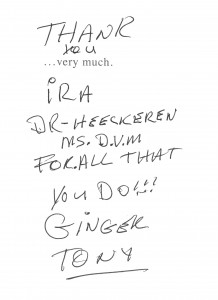 THANK
you
...very much.
iRA
DR-HEECKEREN
MS. D.V.M
FOR.ALL THAT
YOU DO!!!
GiNGER
TONY